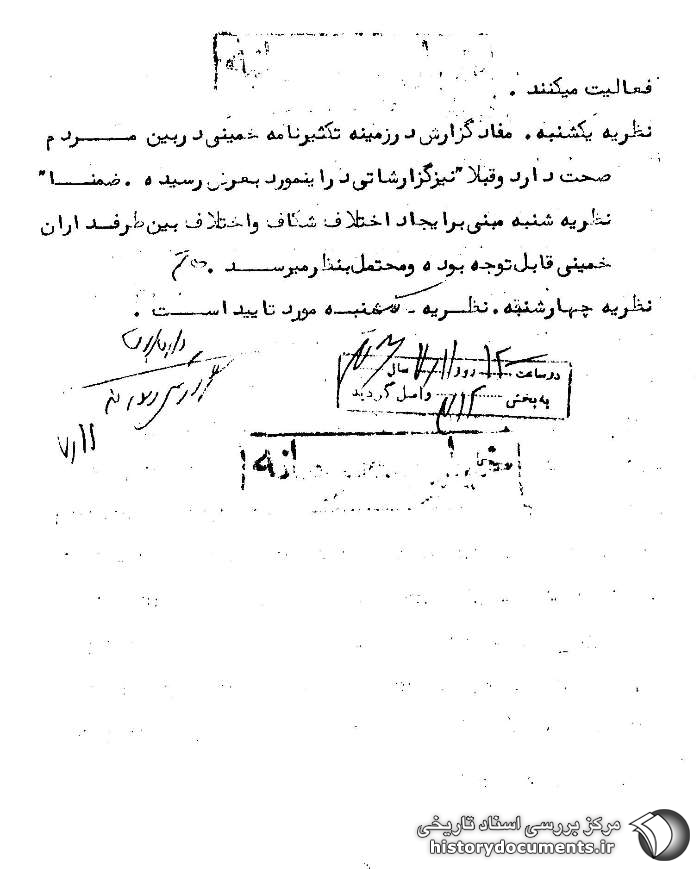 فعالیت میکنند .
نظریه یکشنبه . مفاد گزارش در زمینه تکثیر نامه خمینی در بین مـــردم
صحت دارد وقبلا" نیز گزارشاتی در اینمورد بعرض رسیده . ضمنـــا"
نظریه شنبه مبنی بر ایجاد اختلاف شکاف واختلاف بین طرفداران
خمینی قابل توجه بوده ومحتمل بنظر میرسد .
نظریه چهارشنبه . نظریه ـ شنبه مورد تایید اســت .
در ساعت ۱۲ روز ۷/۱۱ سال
به بخش ۳۱۲ واصل گردید
۷/۱۱
مرکز بررسی اسناد تاریخی
historydocuments.ir